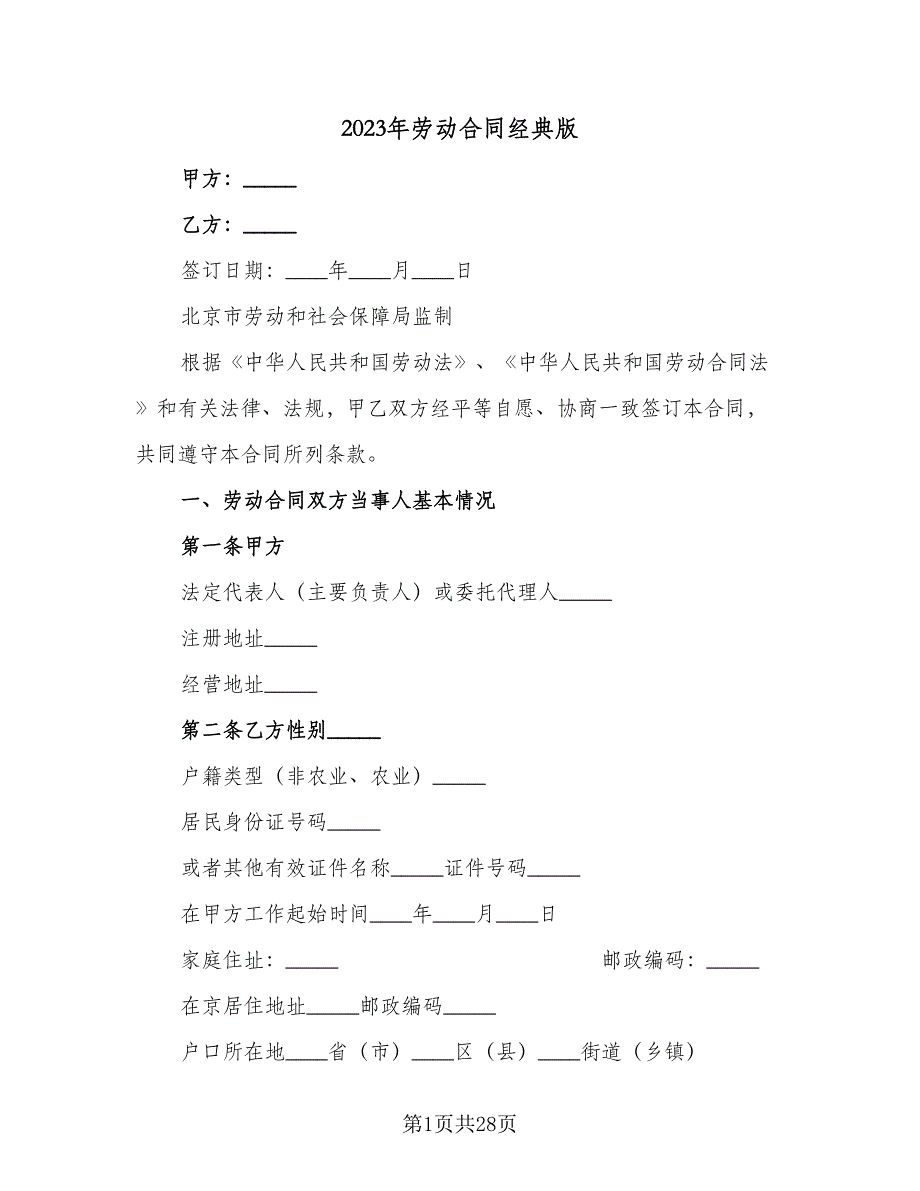 2023年劳动合同经典版
甲方：_____
乙方：_____
签订日期：____年____月____日
北京市劳动和社会保障局监制
根据《中华人民共和国劳动法》、《中华人民共和国劳动合同法
》和有关法律、法规，甲乙双方经平等自愿、协商一致签订本合同，
共同遵守本合同所列条款。
一、劳动合同双方当事人基本情况
第一条甲方
法定代表人（主要负责人）或委托代理人_____
注册地址_____
经营地址_____
第二条乙方性别_____
户籍类型（非农业、农业）_____
居民身份证号码_____
或者其他有效证件名称_____证件号码_____
在甲方工作起始时间____年____月____日
家庭住址：_____ 邮政编码：_____
在京居住地址_____邮政编码_____
户口所在地____省（市）____区（县）____街道（乡镇）
第1页共28页